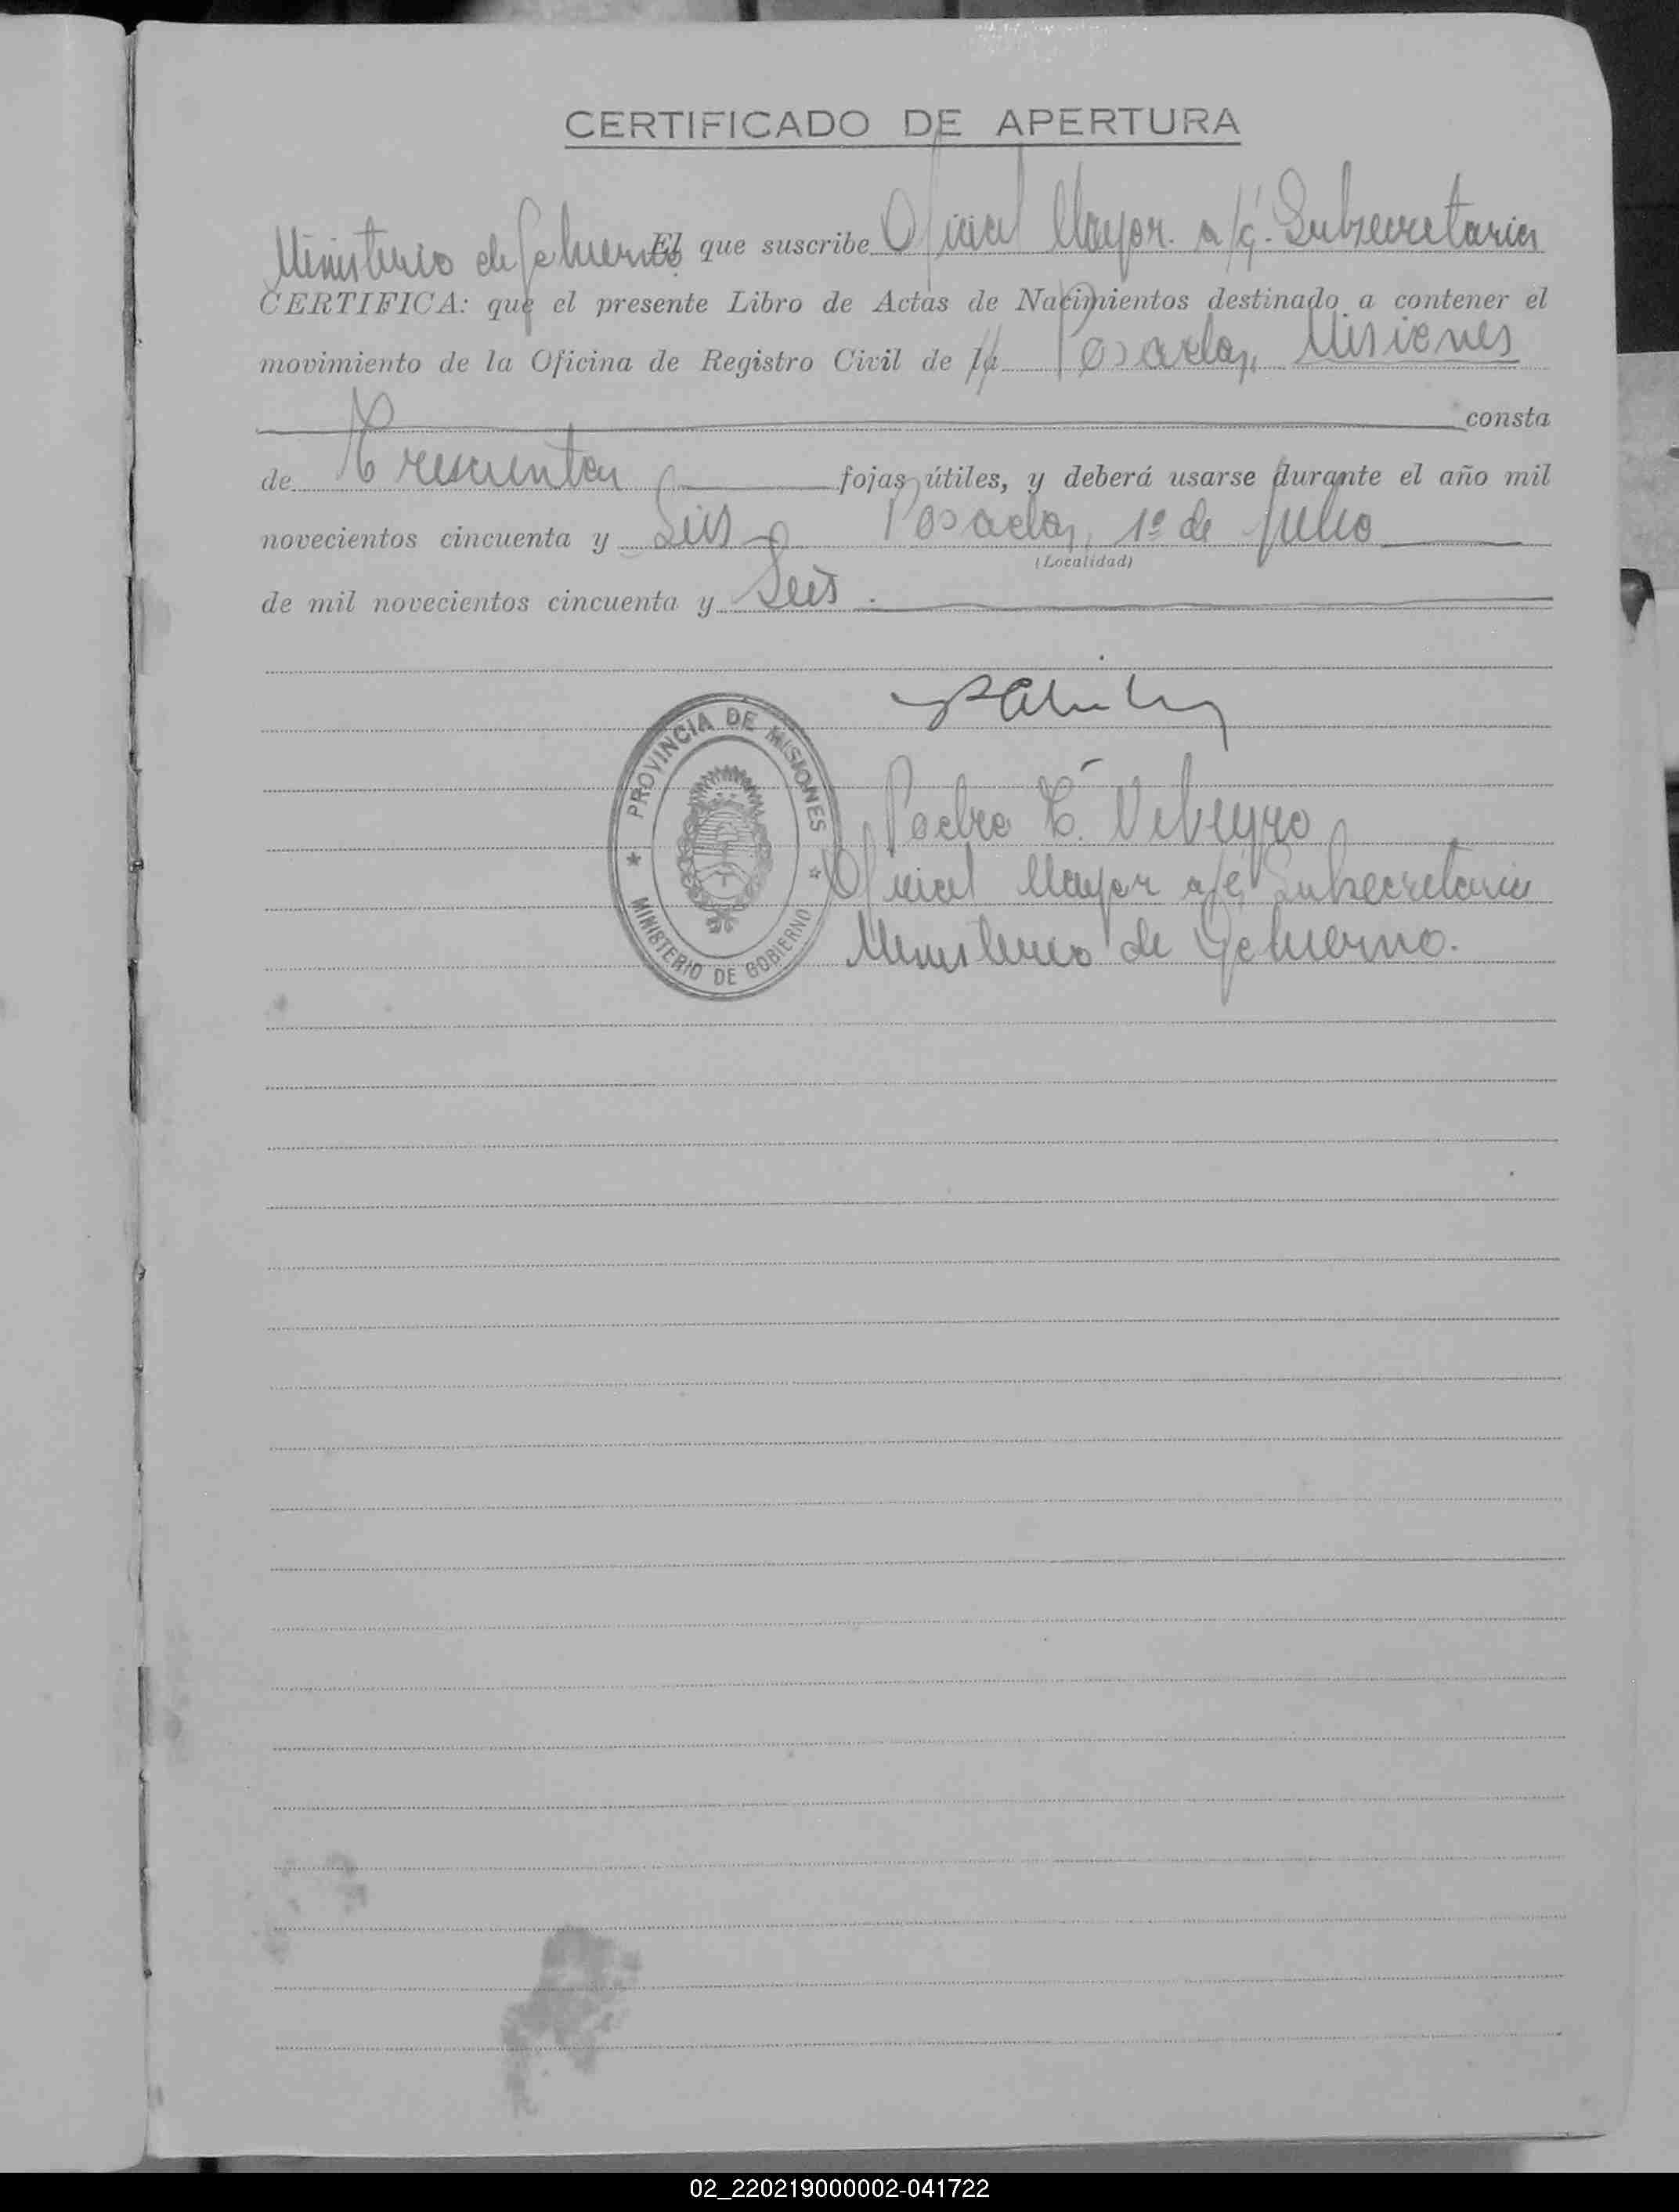 CERTIFICADO DE APERTURA
El que suscribe Oficial Mayor. a/c. Subsecretaria
Ministerio de Gobierno
CERTIFICA: que el presente Libro de Actas de Nacimientos destinado a contener el
movimiento de la Oficina de Registro Civil de la Posadas, Misiones
consta
de Trescientas fojas útiles, y deberá usarse durante el año mil
novecientos cincuenta y Seis Posadas, 1º de Julio
(Localidad)
de mil novecientos cincuenta y Seis.
PROVINCIA DE MISIONES
MINISTERIO DE GOBIERNO
Pedro
Oficial Mayor a/c Subsecretaria
Ministerio de Gobierno.
02_220219000002-041722